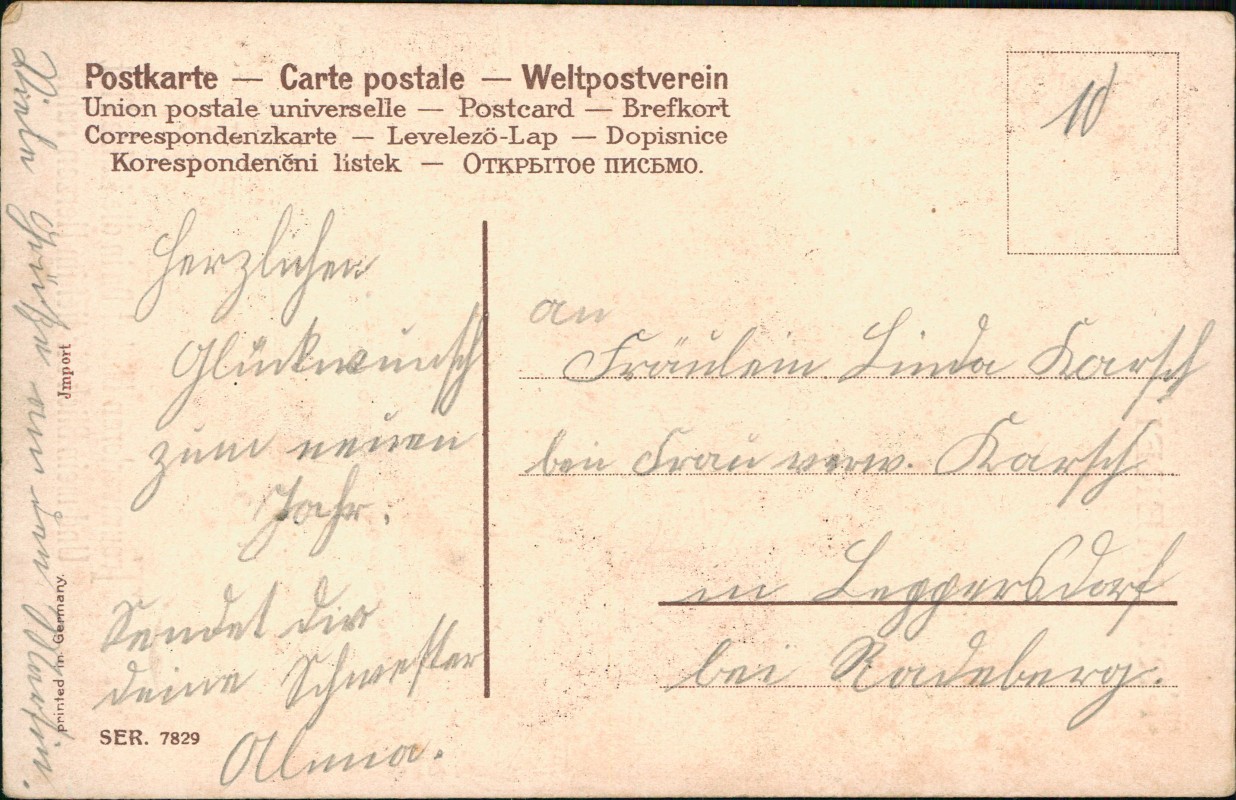 Postkarte — Carte postale — Weltpostverein
Union postale universelle — Postcard — Brefkort
Correspondenzkarte — Levelező-Lap — Dopisnice
Korespondenčni listek — Открытое письмо.
10
Herzlichen
Glückwunsch
zum neuen
Jahr.
Sendet dir
deine Schwester
Alma.
an
Fräulein Linda Karsch
bei Frau verw. Karsch
in Leppersdorf
bei Radeberg.
Viele Grüße
Jmport
printed in Germany.
SER. 7829